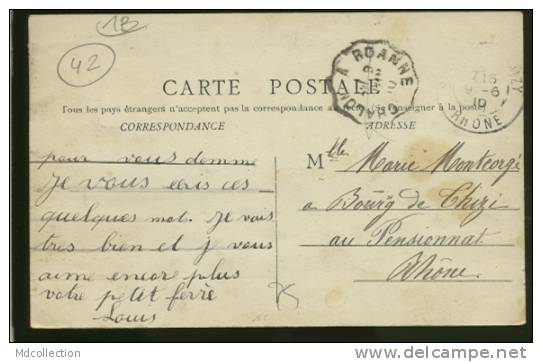 13
42
CHALON A ROANNE
CARTE POSTALE
Tous les pays étrangers n'acceptent pas la correspondance au
à la poste
CORRESPONDANCE
ADRESSE
RHONE
pour vous domme
Je vous eris ces
quelques mot. Je vais
tres bien et je vous
aime encor plus
votre petit ferre
Louis
Mlle Marie Montcorgé
a Bourg de Thizi
au Pensionnat
Rhône.
MDcollection
www.delcampe.net